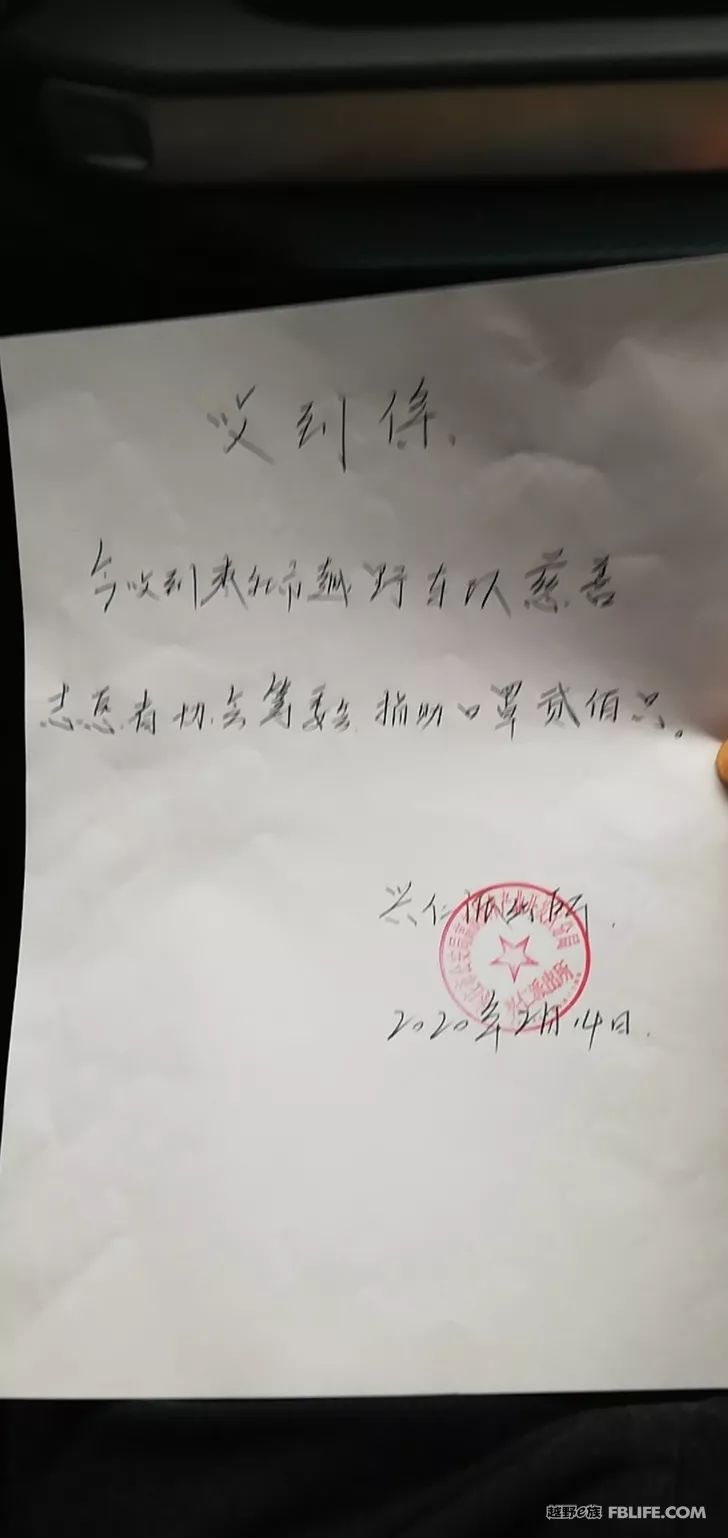 收到条
今收到来宾市越野车队慈善
志愿者协会筹委会捐助口罩贰佰只。
兴仁派出所
兴仁派出所
2020年2月14日.
越野e族 FBLIFE.COM